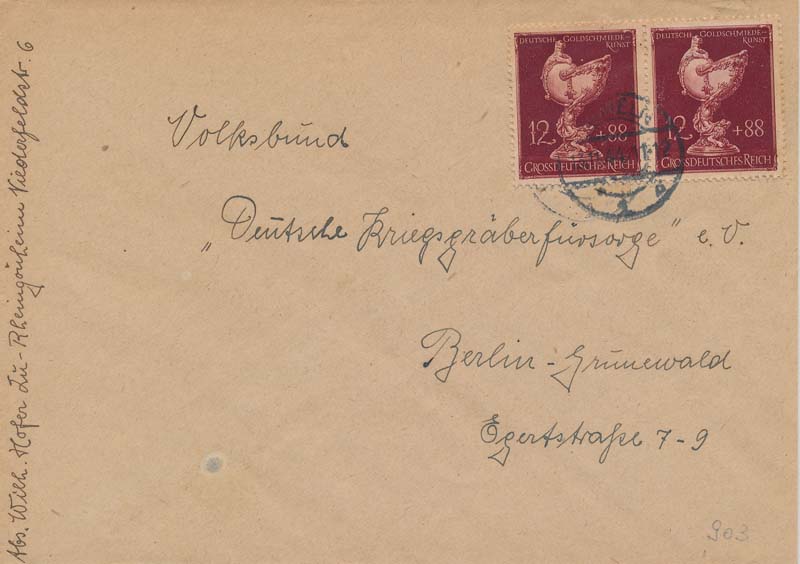 Abs. Wilh. Hofer Lu-Rheingönheim Niederfeldstr. 6
DEUTSCHE GOLDSCHMIEDE-
KUNST
12 +88
GROSSDEUTSCHES REICH
DEUTSCHE GOLDSCHMIEDE-
KUNST
12 +88
GROSSDEUTSCHES REICH
Volksbund
„Deutsche Kriegsgräberfürsorge" e.V.
Berlin-Grunewald
Egertstraße 7-9
903